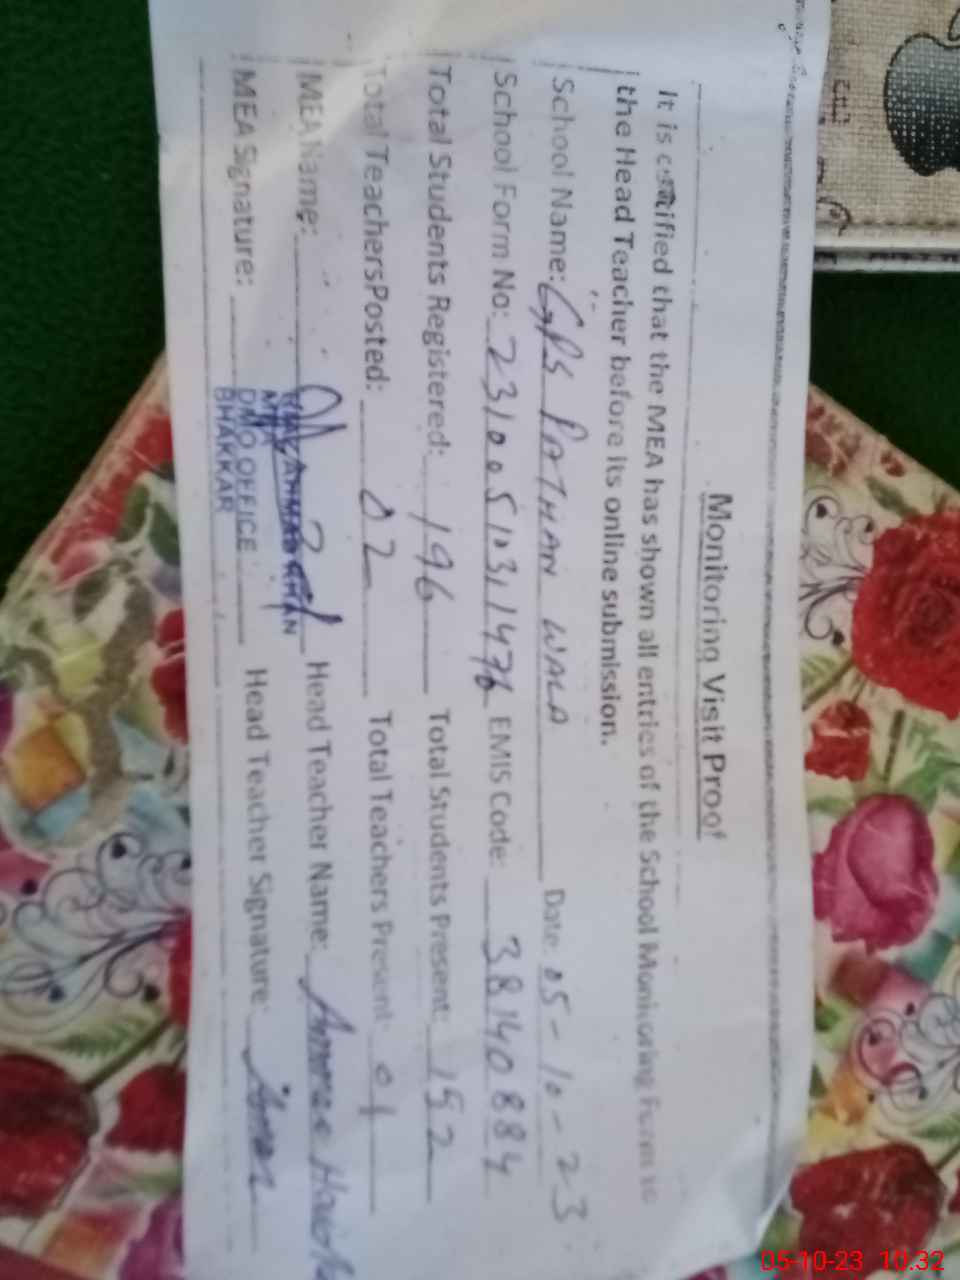 Monitoring Visit Proof
It is certified that the MEA has shown all entries of the School Monitoring Form to
the Head Teacher before its online submission.
School Name: GPS PATHAN WALA Date: 05-10-23
School Form No: 231005103,1476 EMIS Code: 38140884
Total Students Registered: 196 Total Students Present: 152
Total TeachersPosted: 02 Total Teachers Present: 01
MEA Name: Head Teacher Name:
MEA
MEA Signature: DMO OFFICE Head Teacher Signature:
BHAKKAR
05-10-23 10:32